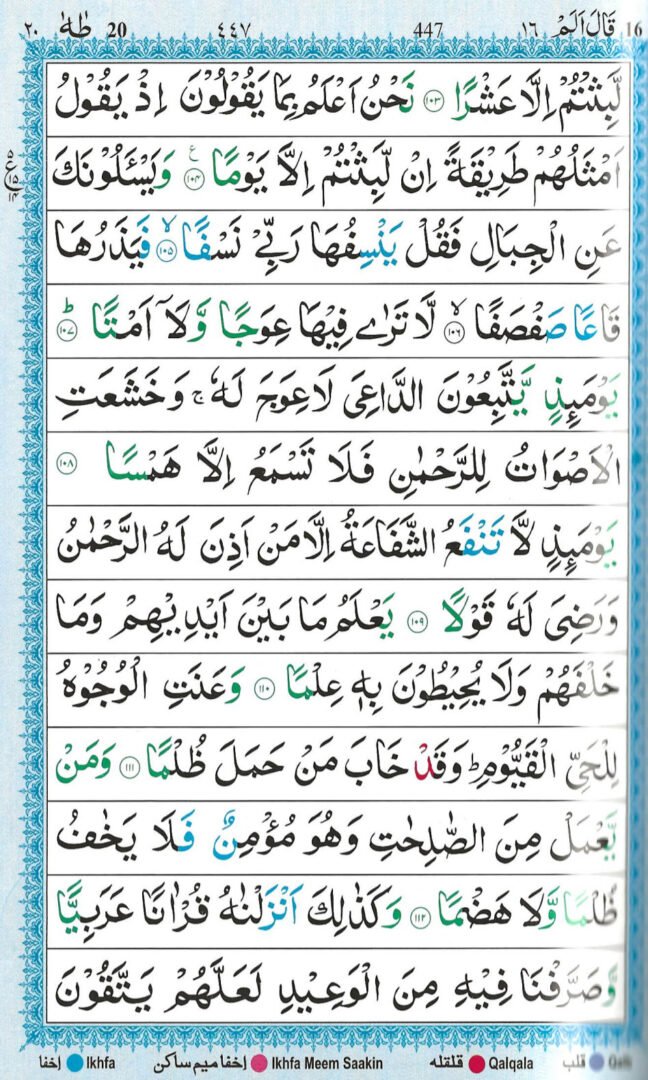 ٢٠ طٰهٰ 20 ٤٤٧ 447 قَالَ اَلَمْ ١٦ 16
لَّبِثْتُمْ اِلَّا عَشْرًا ﴿١٠٣﴾ نَحْنُ اَعْلَمُ بِمَا يَقُوْلُوْنَ اِذْ يَقُوْلُ
اَمْثَلُهُمْ طَرِيْقَةً اِنْ لَّبِثْتُمْ اِلَّا يَوْمًا ﴿١٠٤﴾ وَيَسْـَٔلُوْنَكَ
عَنِ الْجِبَالِ فَقُلْ يَنْسِفُهَا رَبِّيْ نَسْفًا ﴿١٠٥﴾ فَيَذَرُهَا
قَاعًا صَفْصَفًا ﴿١٠٦﴾ لَّا تَرٰى فِيْهَا عِوَجًا وَّلَآ اَمْتًا ﴿١٠٧﴾
يَوْمَئِذٍ يَّتَّبِعُوْنَ الدَّاعِىَ لَا عِوَجَ لَهٗ ۚ وَخَشَعَتِ
الْاَصْوَاتُ لِلرَّحْمٰنِ فَلَا تَسْمَعُ اِلَّا هَمْسًا ﴿١٠٨﴾
يَوْمَئِذٍ لَّا تَنْفَعُ الشَّفَاعَةُ اِلَّا مَنْ اَذِنَ لَهُ الرَّحْمٰنُ
وَرَضِىَ لَهٗ قَوْلًا ﴿١٠٩﴾ يَعْلَمُ مَا بَيْنَ اَيْدِيْهِمْ وَمَا
خَلْفَهُمْ وَلَا يُحِيْطُوْنَ بِهٖ عِلْمًا ﴿١١٠﴾ وَعَنَتِ الْوُجُوْهُ
لِلْحَىِّ الْقَيُّوْمِ ؕ وَقَدْ خَابَ مَنْ حَمَلَ ظُلْمًا ﴿١١١﴾ وَمَنْ
يَّعْمَلْ مِنَ الصّٰلِحٰتِ وَهُوَ مُؤْمِنٌ فَلَا يَخٰفُ
ظُلْمًا وَّلَا هَضْمًا ﴿١١٢﴾ وَكَذٰلِكَ اَنْزَلْنٰهُ قُرْاٰنًا عَرَبِيًّا
وَّصَرَّفْنَا فِيْهِ مِنَ الْوَعِيْدِ لَعَلَّهُمْ يَتَّقُوْنَ
اِخفا Ikhfa اِخفا میم ساکن Ikhfa Meem Saakin قلقلہ Qalqala قلب